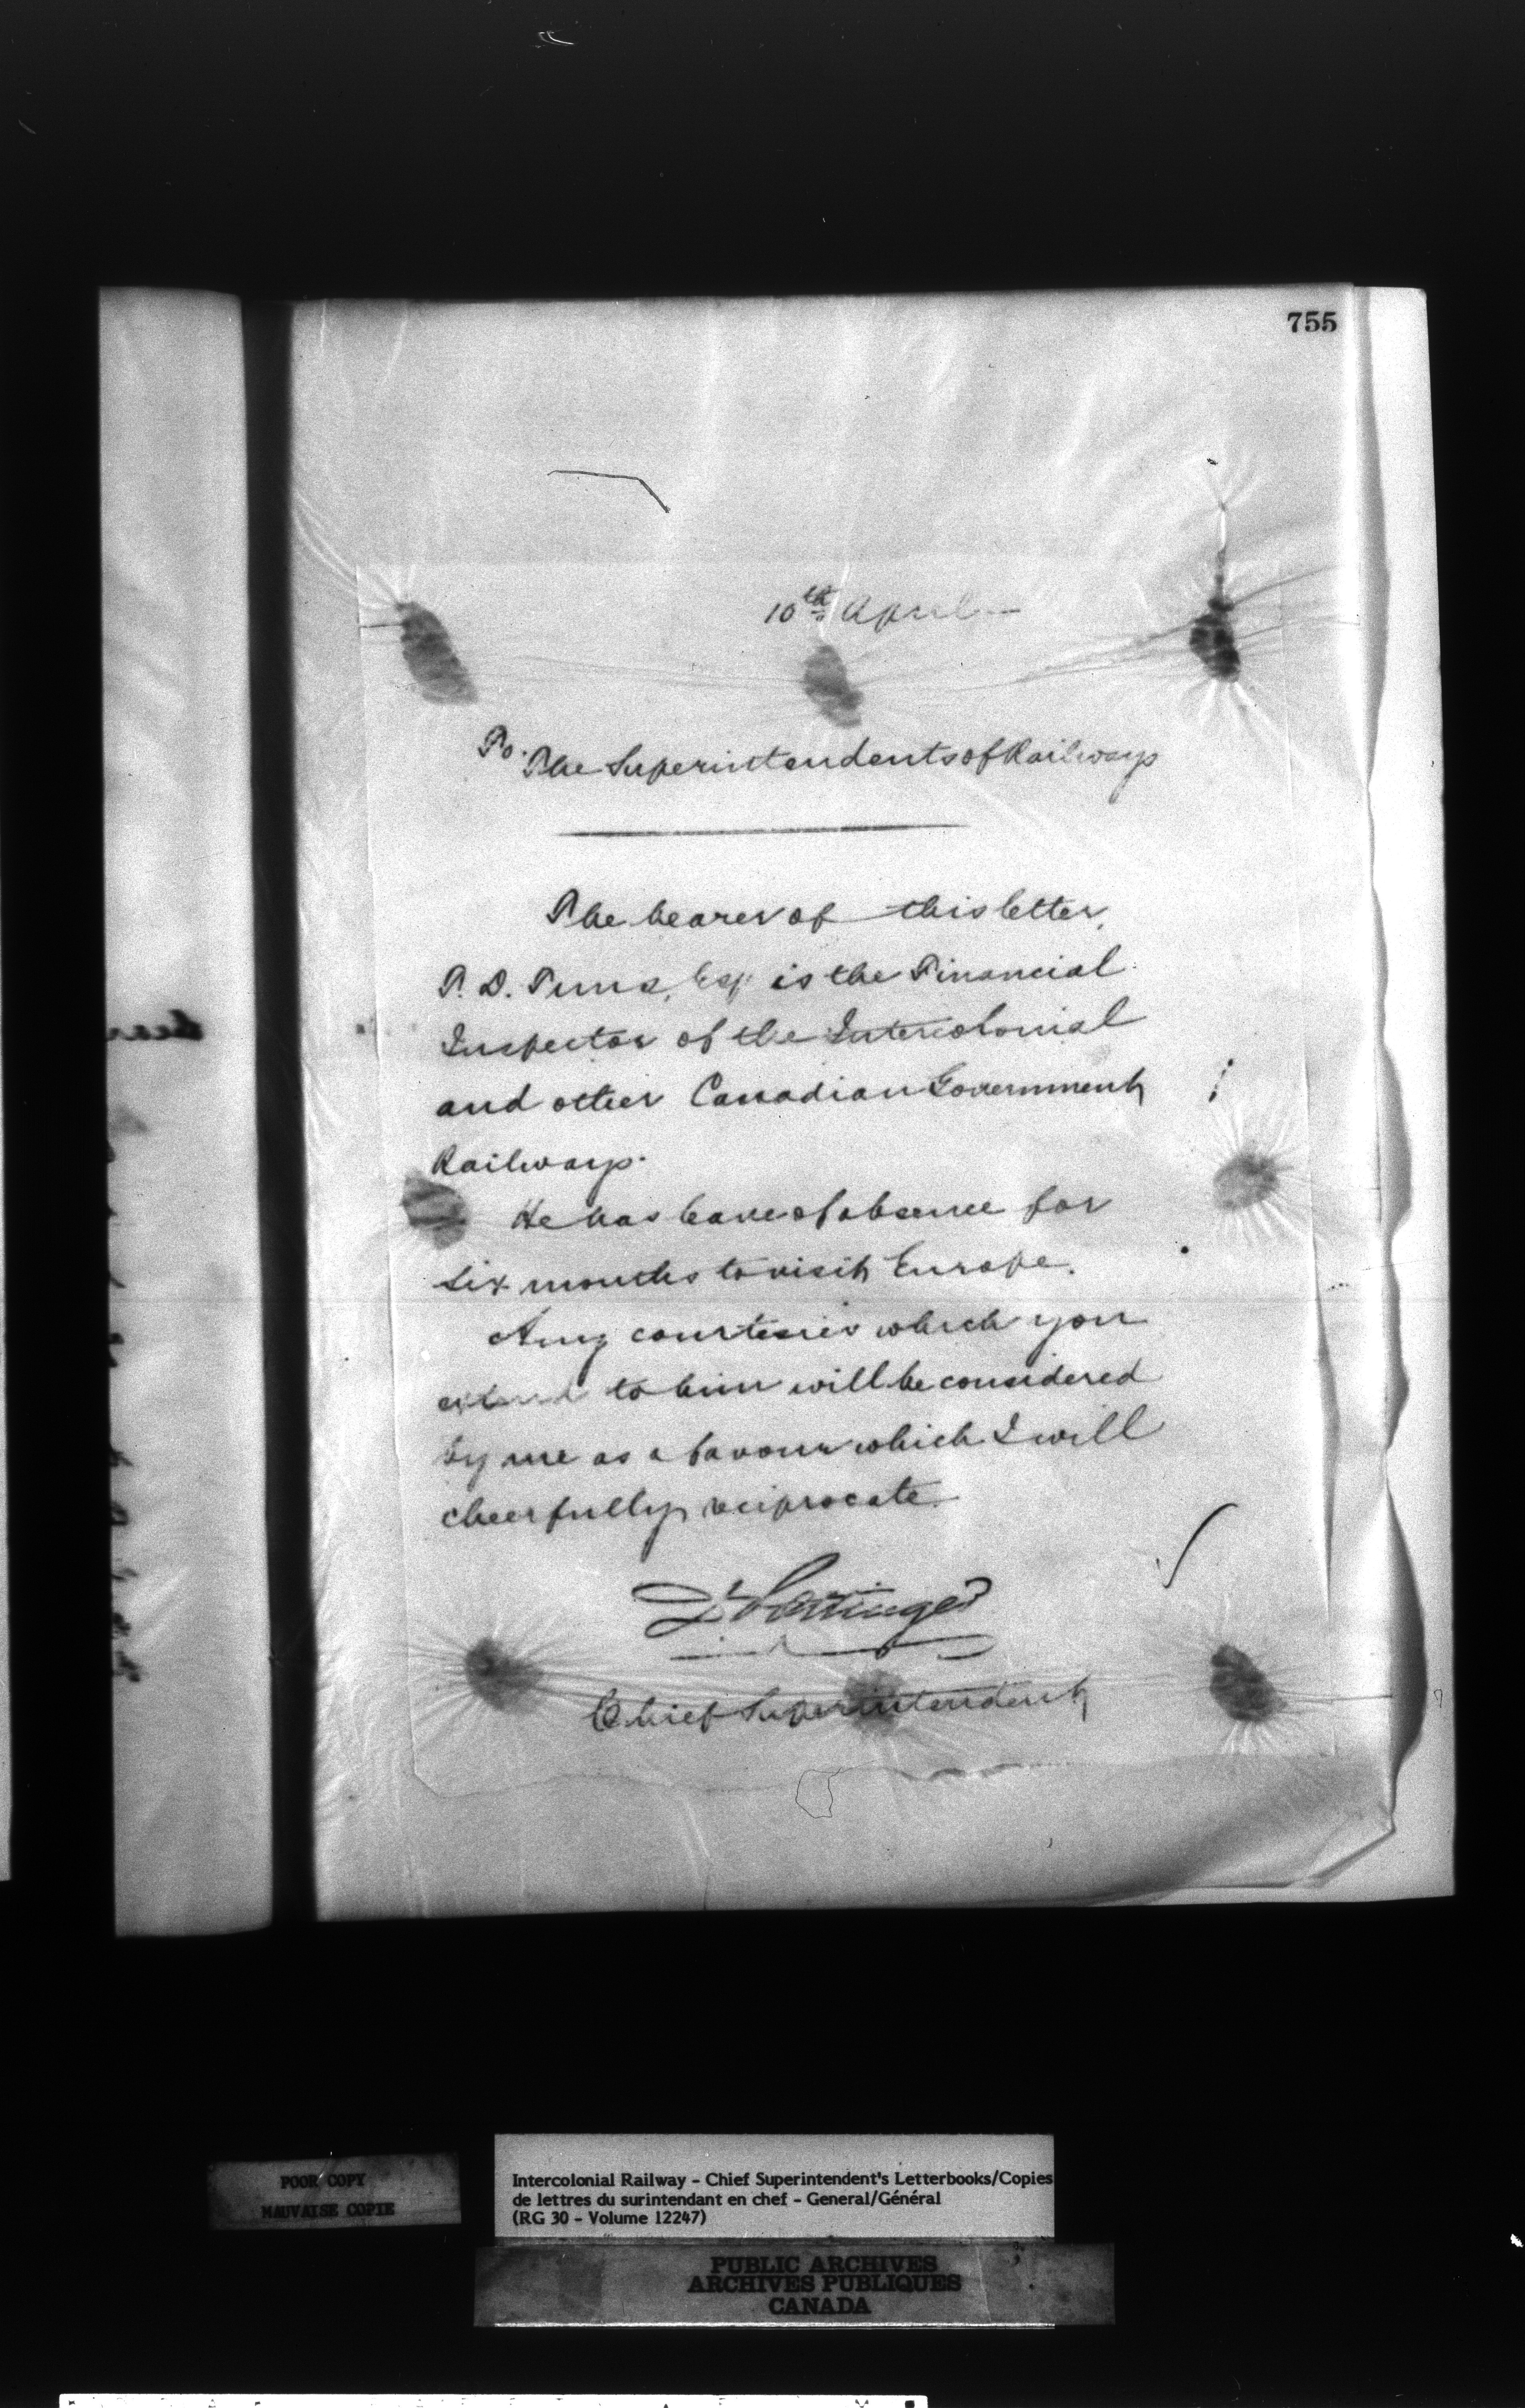 755
10th April
To.
The Superintendents of Railways
The bearer of this letter,
T. D. Tims, Esq is the Financial
Inspector of the Intercolonial
and other Canadian Government
Railways.
He has leave of absence for
six months to visit Europe.
Any courtesies which you
extend to him will be considered
by me as a favour which I will
cheerfully reciprocate.
D Pottinger
Chief Superintendent
POOR COPY
MAUVAISE COPIE
Intercolonial Railway - Chief Superintendent's Letterbooks/Copies
de lettres du surintendant en chef - General/Général
(RG 30 - Volume 12247)
PUBLIC ARCHIVES
ARCHIVES PUBLIQUES
CANADA